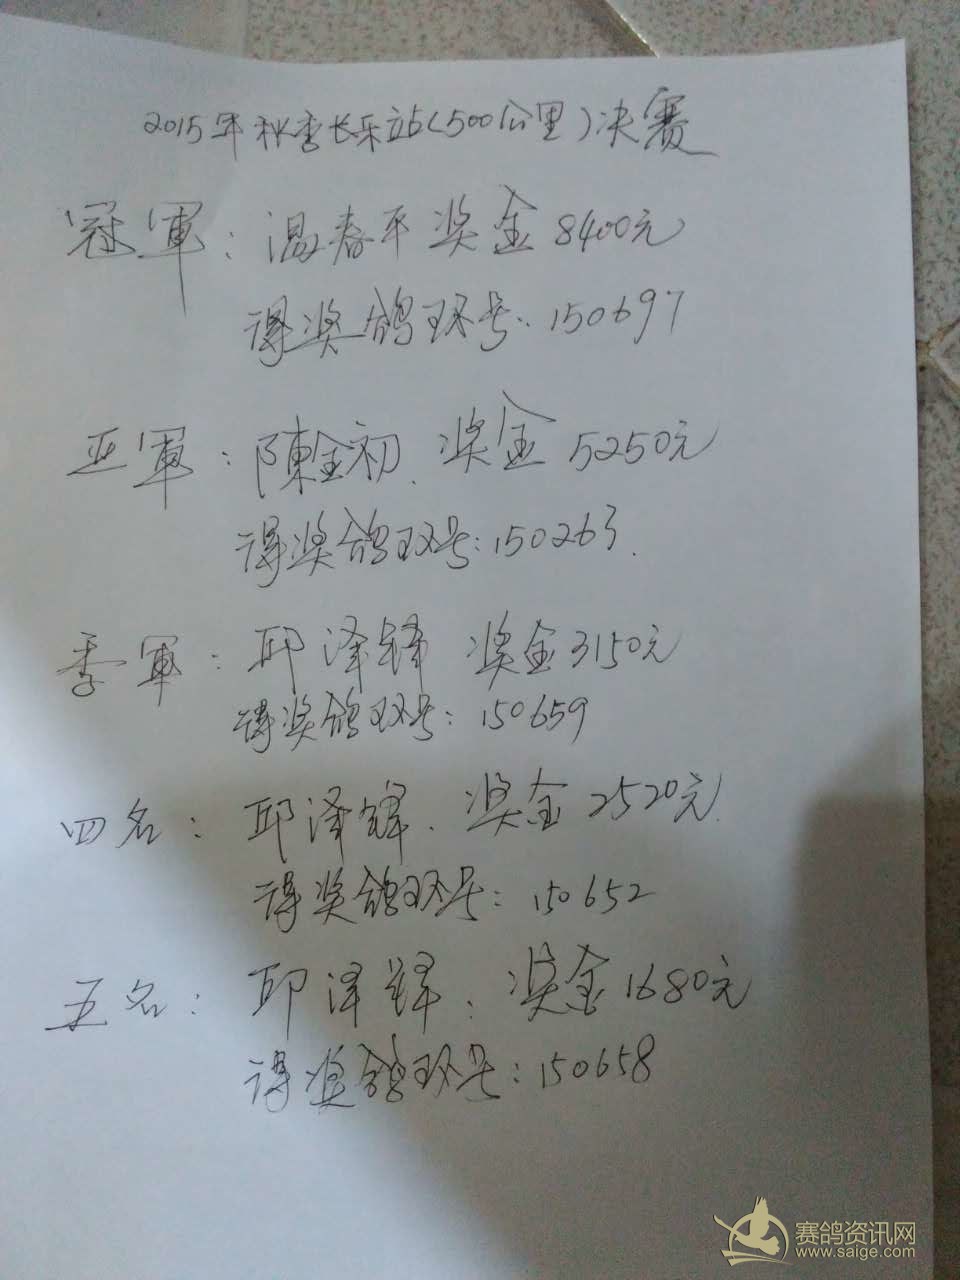 2015年秋季长乐站(500公里)决赛
冠軍：温春平 奖金8400元
得奖鸽环号：150697
亚軍：陳金初．奖金5250元
得奖鸽环号：150263．
季軍：邱泽锋 奖金3150元
得奖鸽环号：150659
四名：邱泽锋．奖金2520元．
得奖鸽环号：150652
五名：邱泽锋．奖金1680元
得奖鸽环号：150658
赛鸽资讯网
www.saige.com